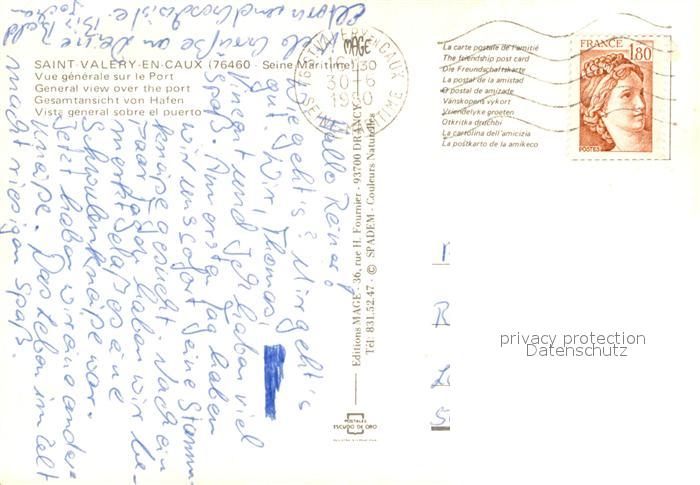 SAINT-VALERY-EN-CAUX (76460 - Seine Maritime)
Vue générale sur le Port
General view over the port
Gesamtansicht von Hafen
Vista general sobre el puerto
30-6
1980
SEINE MARITIME
MAGE
Editions MAGE - 36, rue H. Fournier - 93700 DRANCY
Tél: 831.52.47 - © SPADEM - Couleurs Naturelles
POSTALES
ESCUDO DE ORO
La carte postale de l'amitié
The friendship post card
Die Freundschaftskarte
La postal de la amistad
O postal de amizade
Vänskapens vykort
Vriendelyke groeten
Otkritka druchbi
La cartolina dell'amicizia
La poŝtkarto de la amikeco
FRANCE
1,80
POSTES
Hallo Rainar!
Wie geht's? Mir geht's
gut. Wir, Thomas,
Vincent und ich haben viel
Spaß. Am ersten Tag haben
wir uns sofort eine Stamm-
kneipe gesucht. Nach ein
paar Tagen haben wir be-
merkt, daß es eine
Schwulenkneipe war.
Jetzt haben wir eine andere
Kneipe. Das Leben im Zelt
macht riesigen Spaß.
Viele Grüße an deine
Eltern und Geschwister. Bis bald
privacy protection
Datenschutz